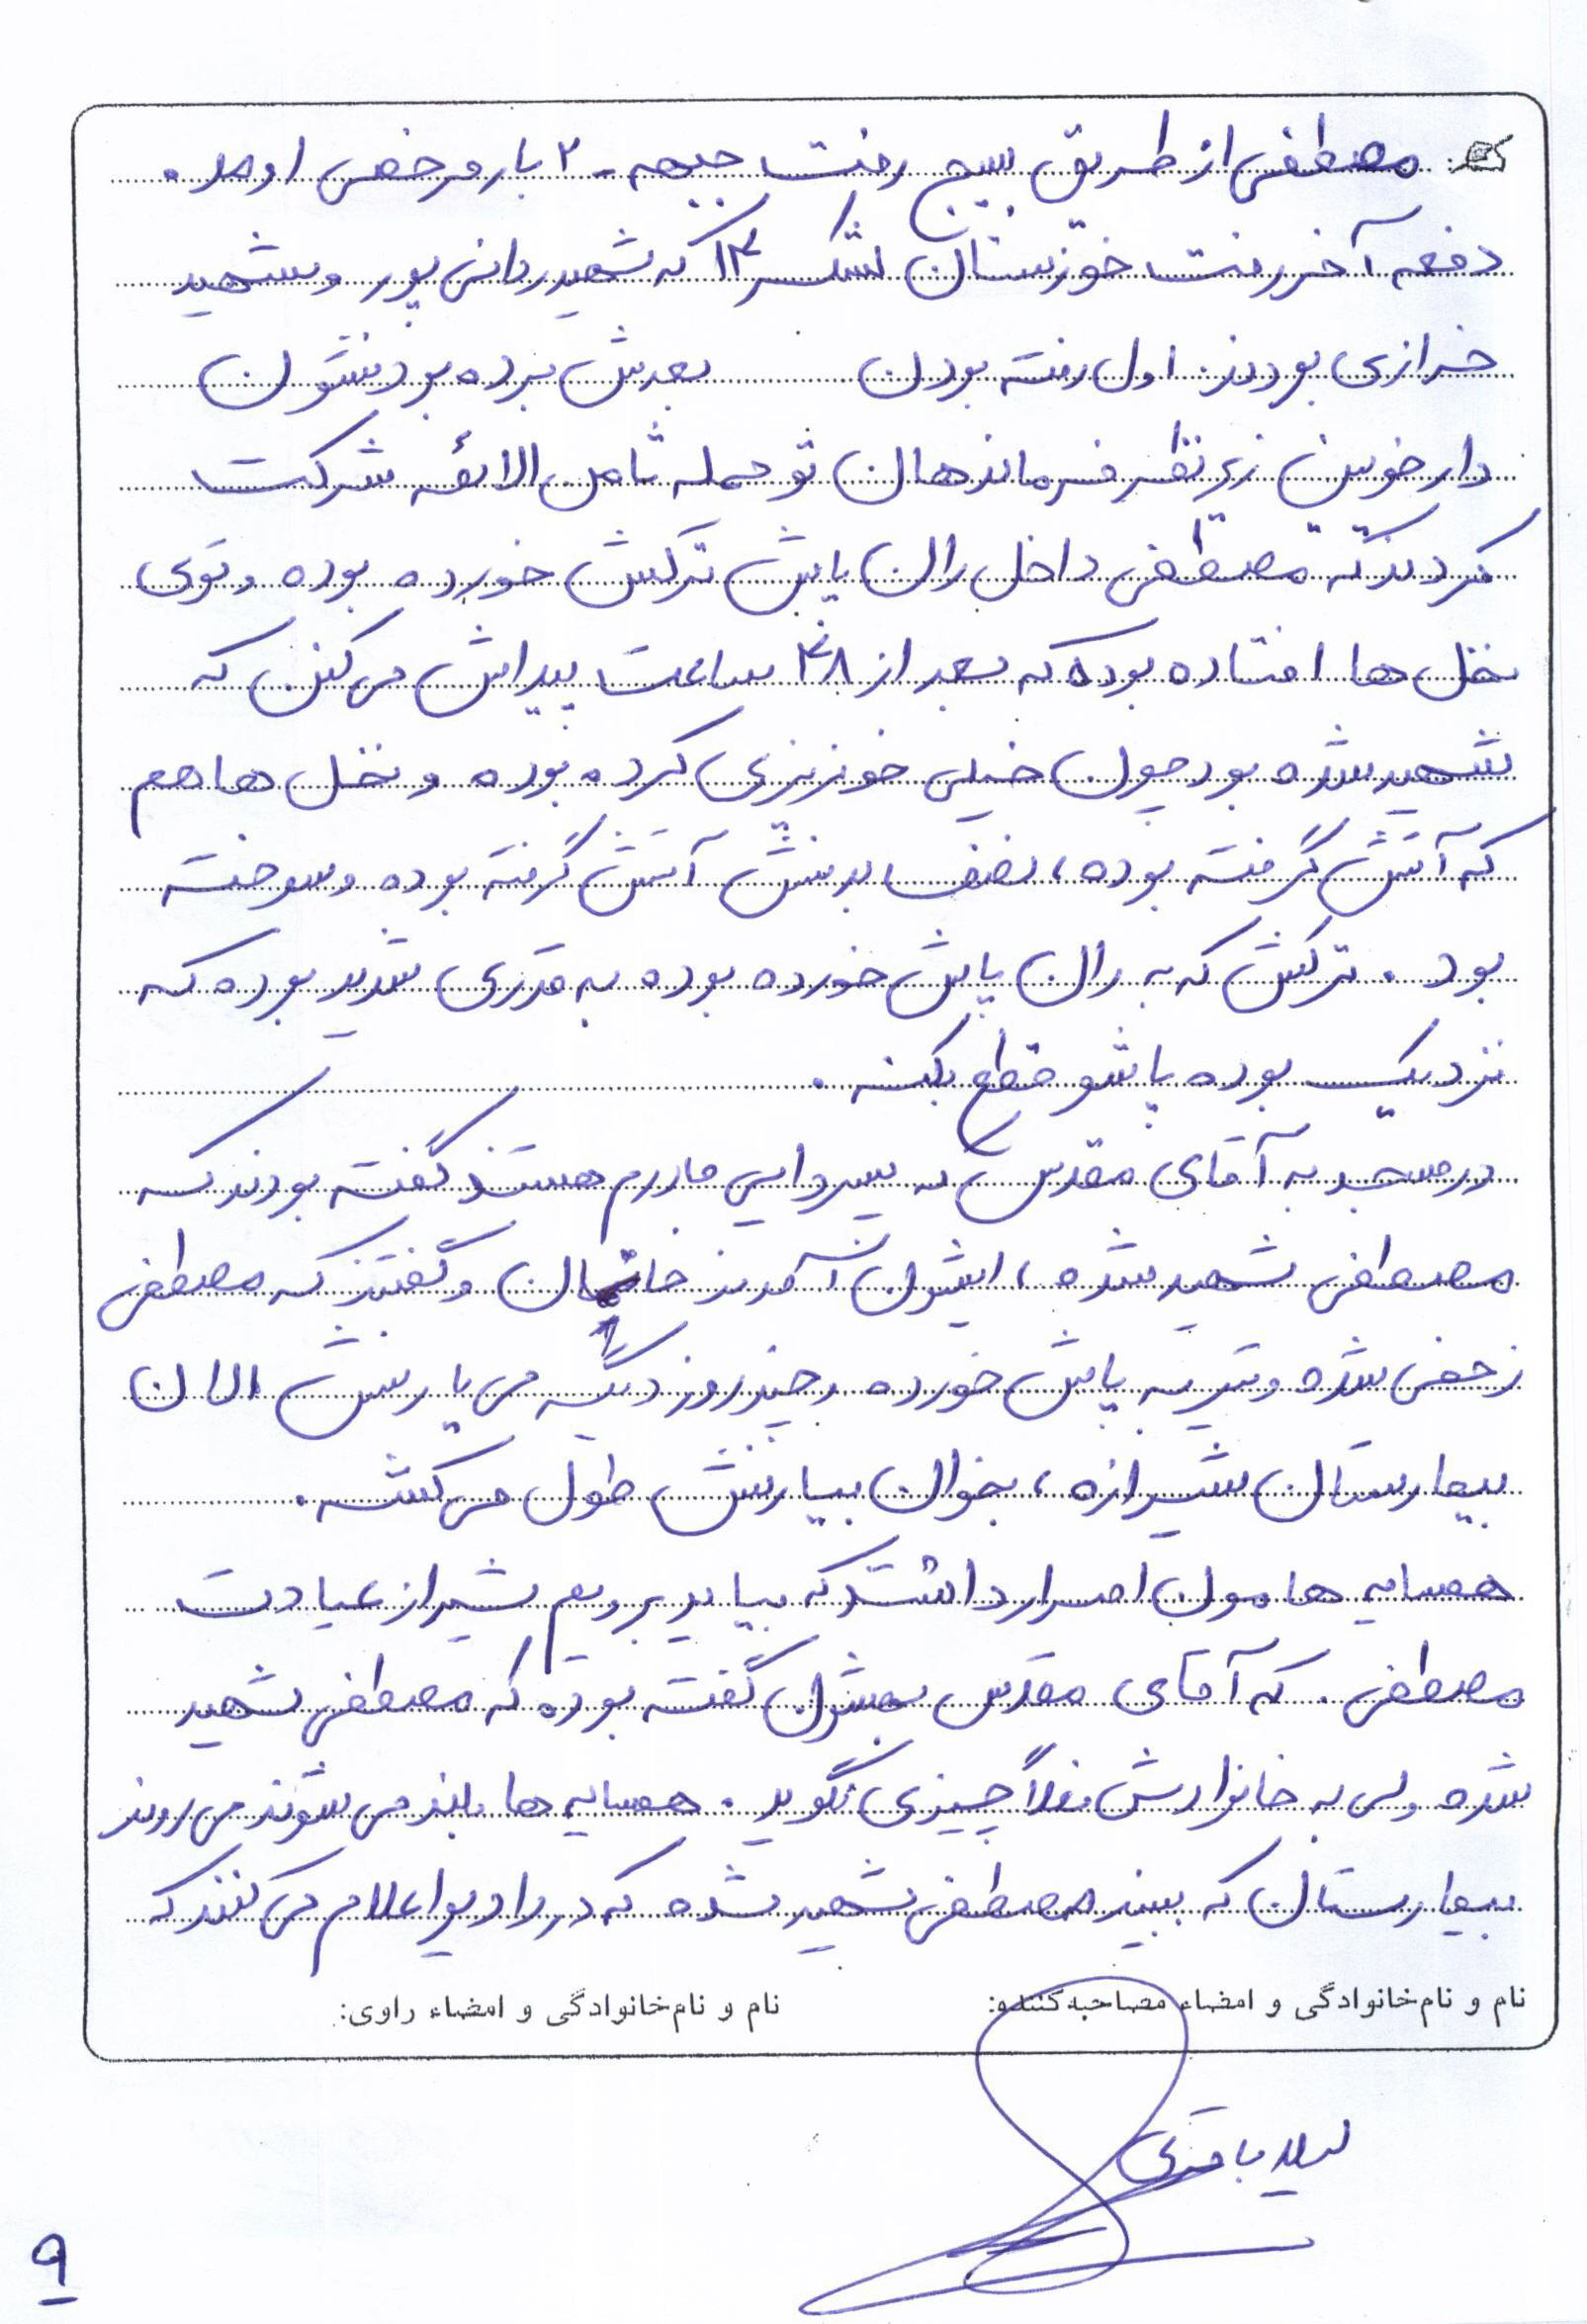 مصطفی از طریق بسیج رفت جبهه - ۲ بار مرخصی اومد .
دفعه آخر رفت خوزستان لشکر ۱۴ که شهید ردانی پور و شهید
خرازی بودند . اول رفته بودن بعدش برده بودنشون
دارخوین زیر نظر فرماندهان تو حمله ثامن الائمه شرکت
کردند که مصطفی داخل ران پاش ترکش خورده بوده و توی
نخل ها افتاده بوده که بعد از ۴۸ ساعت پیداش می کنن که
شهید شده بود چون خیلی خونریزی کرده بوده و نخل ها هم
که آتش گرفته بوده ، نصف بدنش آتش گرفته بوده و سوخته
بود . ترکش که به ران پاش خورده بوده به قدری شدید بوده که
نزدیک بوده پاشو قطع بکنه .
در مسجد به آقای مقدس که پسر دایی مادرم هستند گفته بودند که
مصطفی شهید شده ، ایشون آمدند خانمان و گفتند که مصطفی
زخمی شده و تیر به پاش خورده و چند روز دیگه می یارنش الان
بیمارستان شیرازه ، بخوان بیارنش طول می کشه .
همسایه هامون اصرار داشتند که بیاید برویم شیراز عیادت
مصطفی . که آقای مقدس بهشون گفته بوده که مصطفی شهید
شده ولی به خانوادش فعلاً چیزی نگوید . همسایه ها بلند می شوند می روند
بیمارستان که ببیند مصطفی شهید شده که در رادیو اعلام می کنند که
نام و نام‌خانوادگی و امضاء مصاحبه‌کننده: نام و نام‌خانوادگی و امضاء راوی:
باقری
۹